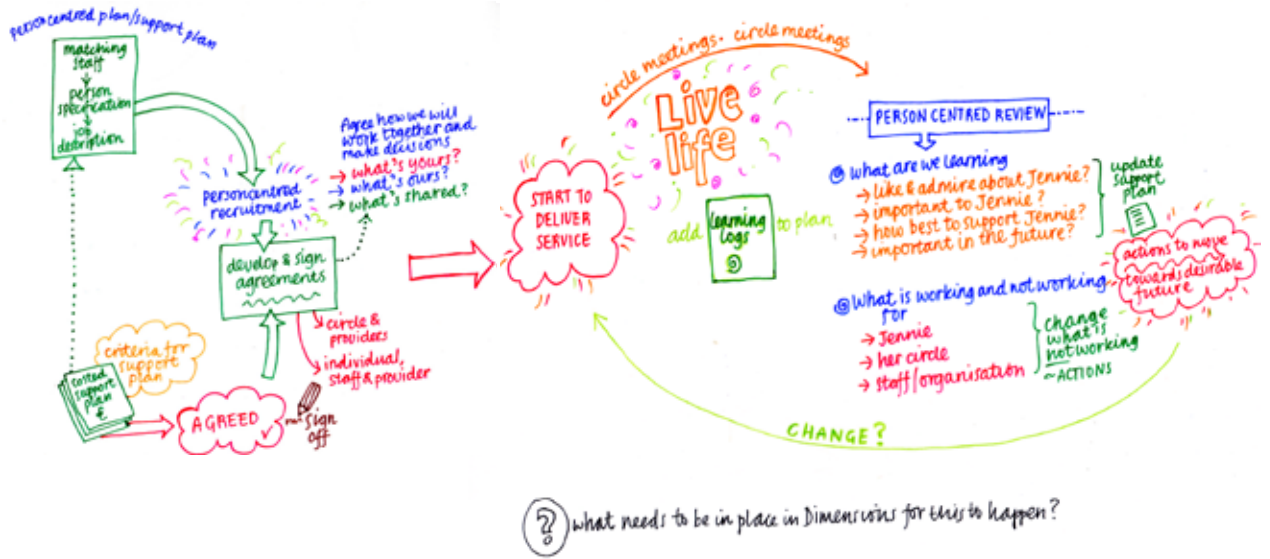 person centred plan/support plan
matching
staff
person
specification
job
description
person centred
recruitment
Agree how we will
work together and
make decisions
→ what's yours?
→ what's ours?
→ what's shared?
develop & sign
agreements
circle &
providers
individual,
staff & provider
criteria for
support
plan
costed
support
plan
£
AGREED ✓
sign
off
START TO
DELIVER
SERVICE
circle meetings. circle meetings
Live
life
add learning logs to plan
PERSON CENTRED REVIEW
what are we learning
→ like & admire about Jennie?
→ important to Jennie?
→ how best to support Jennie?
→ important in the future?
update
support
plan
actions to move
towards desirable
future
What is working and not working
for
→ Jennie
→ her circle
→ staff/organisation
change
what is
not working
~ACTIONS
CHANGE?
? what needs to be in place in Dimensions for this to happen?